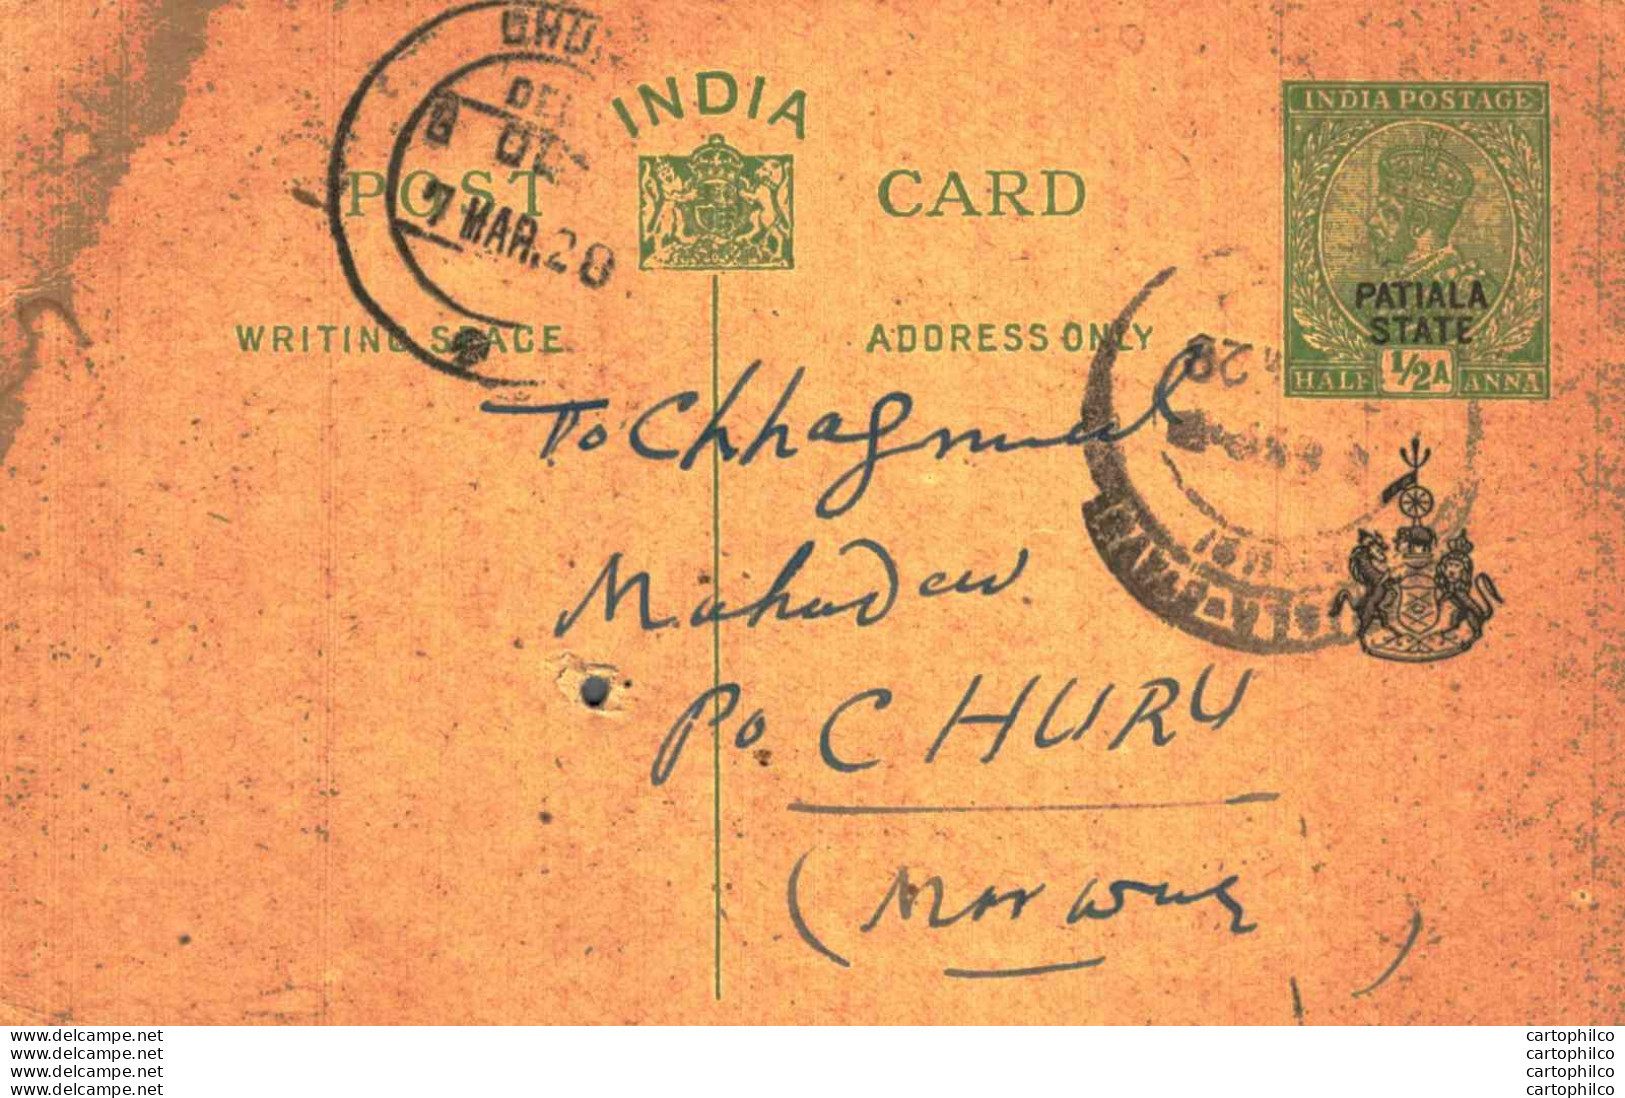 CHU
DEL
7 MAR. 28
INDIA
POST CARD
WRITING SPACE
ADDRESS ONLY
INDIA POSTAGE
PATIALA
STATE
HALF 1/2A ANNA
To Chhagmal
Mahadew
Po. CHURU
(Marwar)
delcampe.net
delcampe.net
delcampe.net
delcampe.net
cartophilco
cartophilco
cartophilco
cartophilco